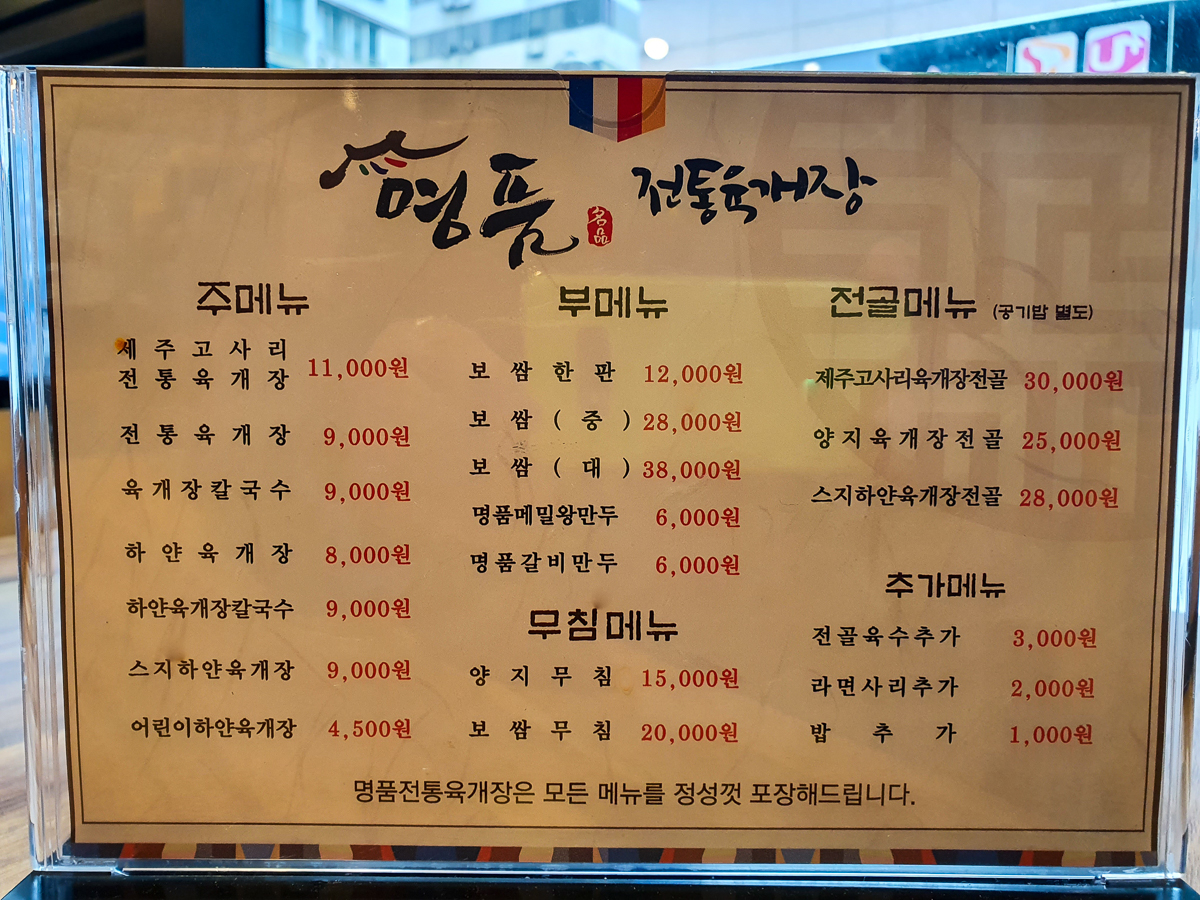 명품 名品 전통육개장
주메뉴
제주고사리
전통육개장 11,000원
전통육개장 9,000원
육개장칼국수 9,000원
하얀육개장 8,000원
하얀육개장칼국수 9,000원
스지하얀육개장 9,000원
어린이하얀육개장 4,500원
부메뉴
보쌈한판 12,000원
보쌈(중) 28,000원
보쌈(대) 38,000원
명품메밀왕만두 6,000원
명품갈비만두 6,000원
무침메뉴
양지무침 15,000원
보쌈무침 20,000원
전골메뉴 (공기밥 별도)
제주고사리육개장전골 30,000원
양지육개장전골 25,000원
스지하얀육개장전골 28,000원
추가메뉴
전골육수추가 3,000원
라면사리추가 2,000원
밥추가 1,000원
명품전통육개장은 모든 메뉴를 정성껏 포장해드립니다.